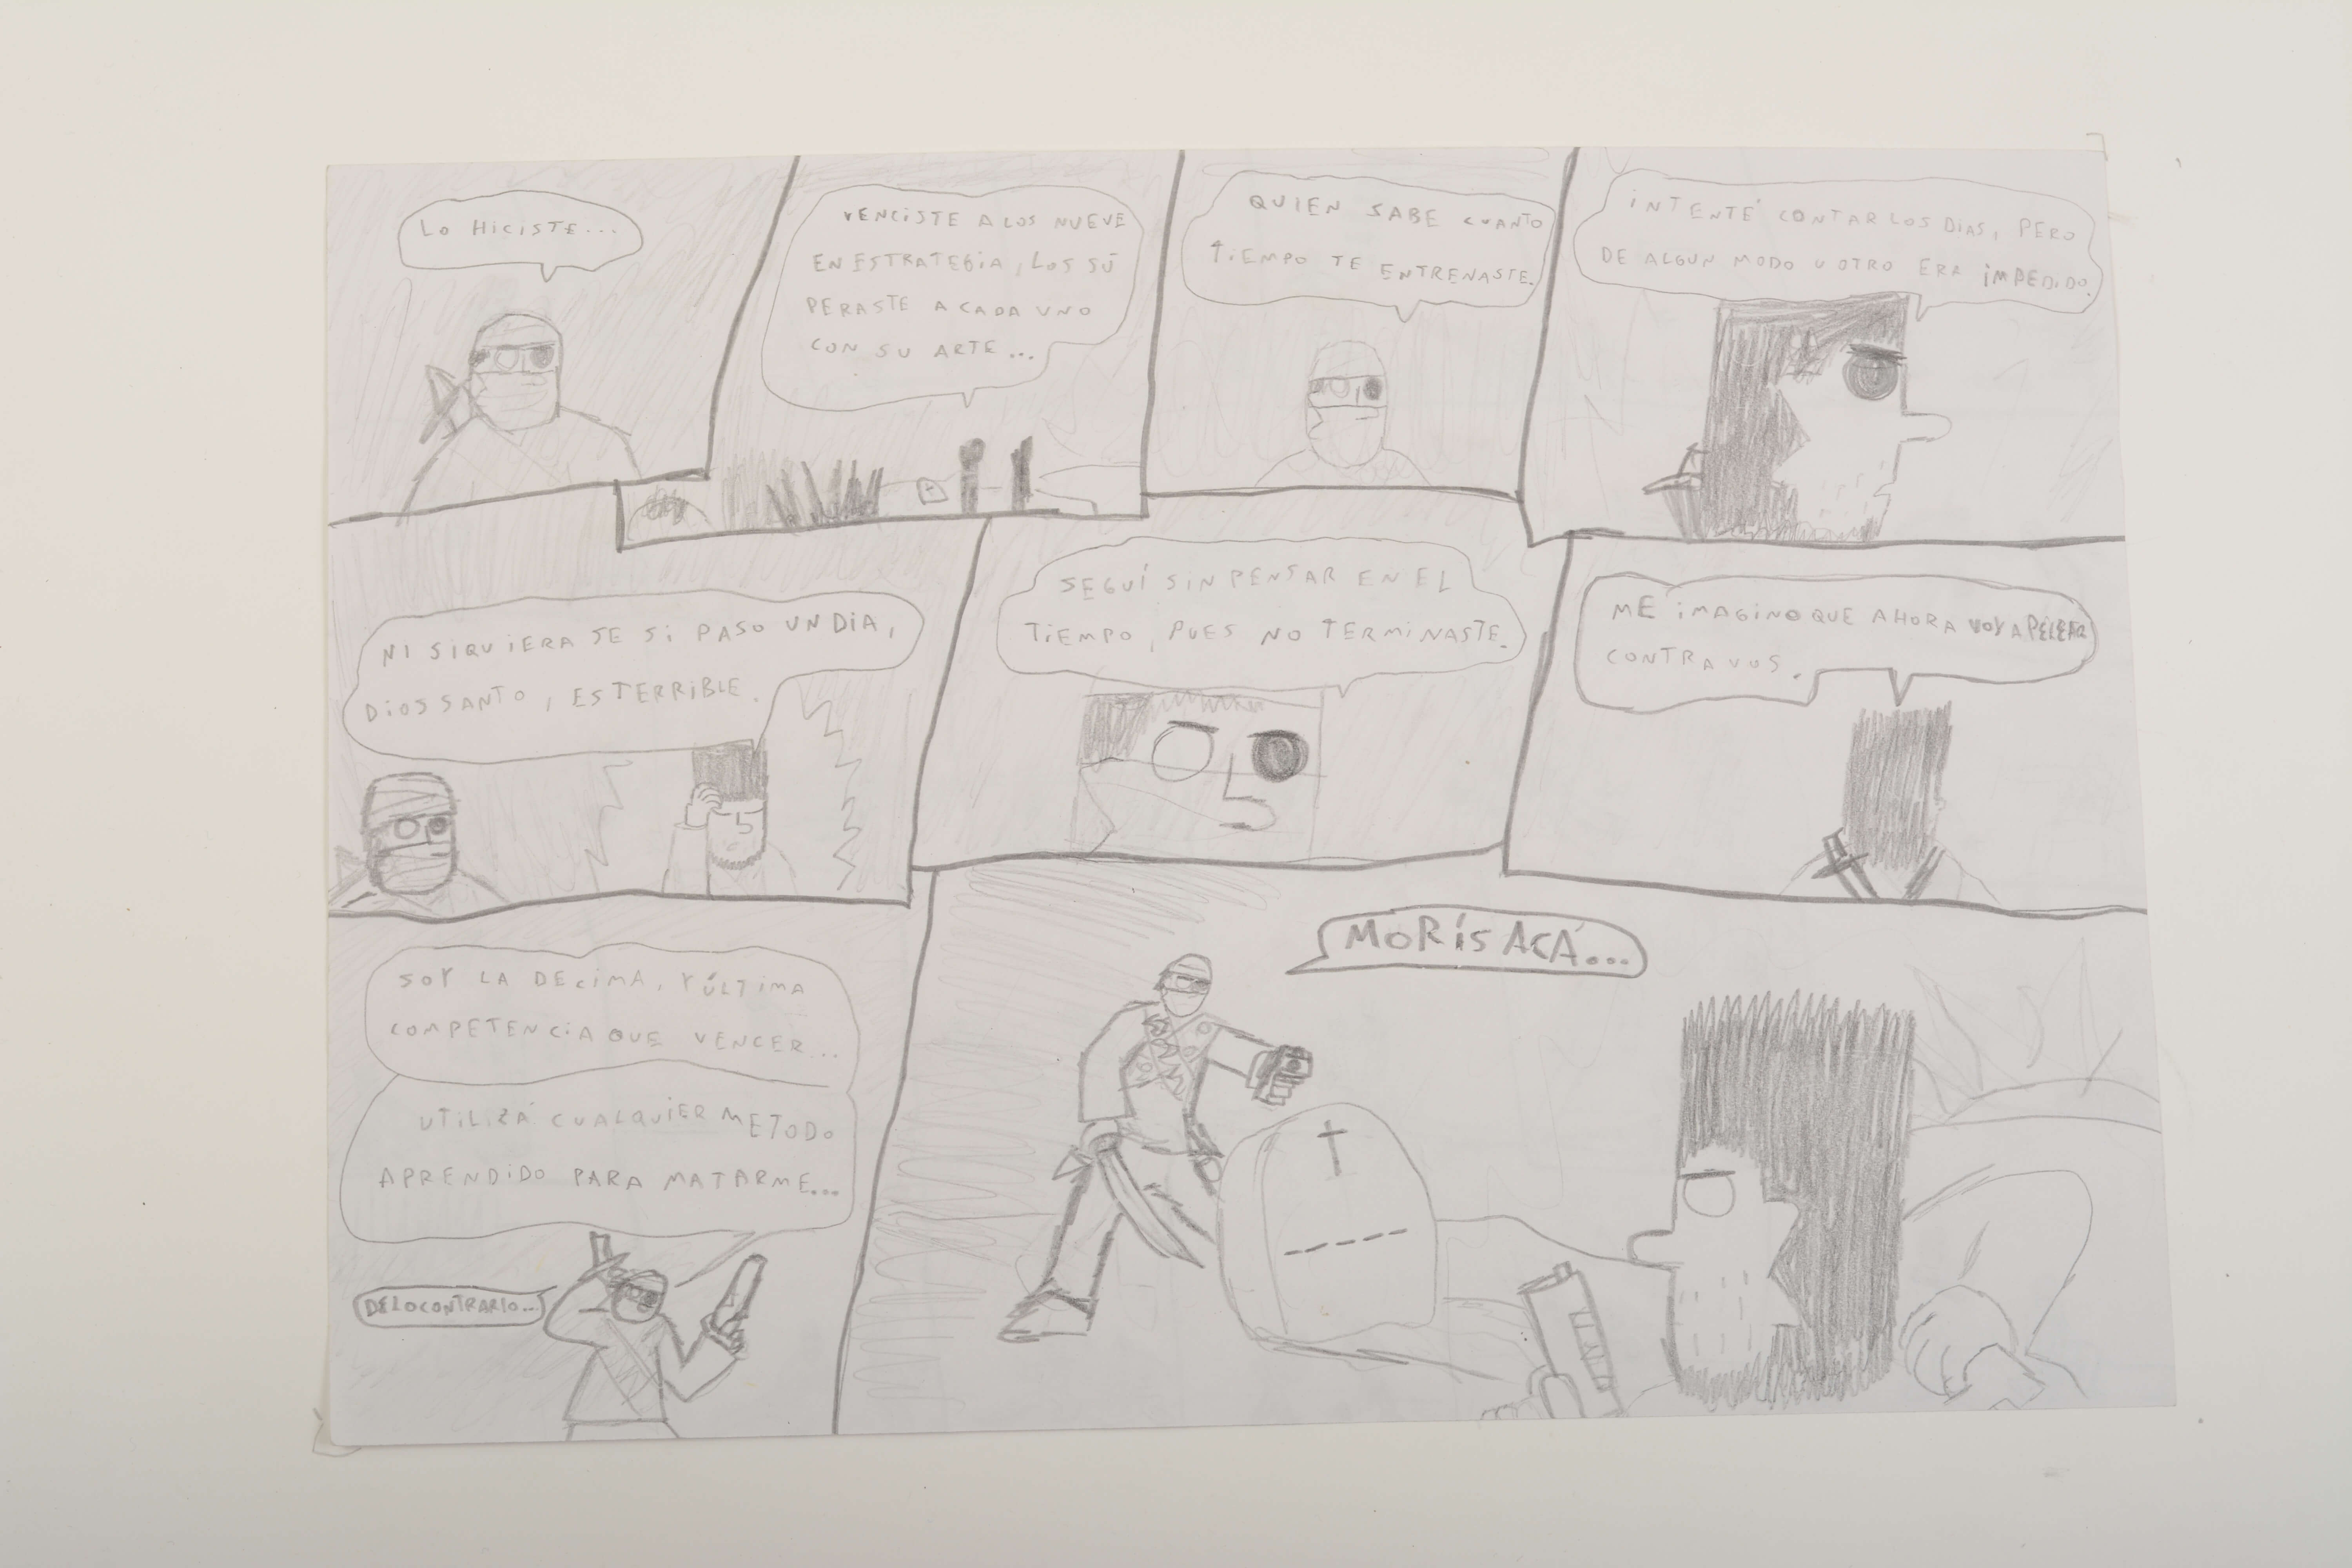 LO HICISTE...
VENCISTE A LOS NUEVE
EN ESTRATEGIA, LOS SU
PERASTE A CADA UNO
CON SU ARTE...
QUIEN SABE CUANTO
TIEMPO TE ENTRENASTE.
INTENTÉ CONTAR LOS DIAS, PERO
DE ALGUN MODO U OTRO ERA IMPEDIDO.
NI SIQUIERA SE SI PASO UN DIA,
DIOS SANTO, ES TERRIBLE.
SEGUÍ SIN PENSAR EN EL
TIEMPO, PUES NO TERMINASTE.
ME IMAGINO QUE AHORA VOY A PELEAR
CONTRA VOS.
SOY LA DECIMA, Y ÚLTIMA
COMPETENCIA QUE VENCER...
UTILIZÁ CUALQUIER METODO
APRENDIDO PARA MATARME...
DE LO CONTRARIO...
MORÍS ACÁ...